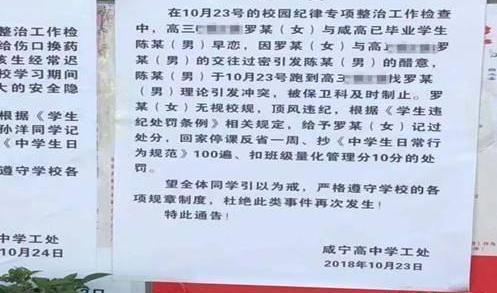 整治工作
给伤口换药
该生经常迟
校学习期间
大的安全隐
》《学生
孙洋同学记
《中学生日
高中学工处
10月24日
在10月23号的校园纪律专项整治工作检查
中，高三 罗某（女）与咸高已毕业学生
陈某（男）早恋，因罗某（女）与高 罗
某（男）的交往过密引发陈某（男）的醋意，
陈某（男）于10月23号跑到高3 找罗某
（男）理论引发冲突，被保卫科及时制止。罗
某（女）无视校规，顶风违纪，根据《学生违
纪处罚条例》相关规定，给予罗某（女）记过
处分，回家停课反省一周、抄《中学生日常行
为规范》100遍、扣班级量化管理分10分的处
罚。
望全体同学引以为戒，严格遵守学校的各
项规章制度，杜绝此类事件再次发生！
特此通告！
咸宁高中学工处
2018年10月23日